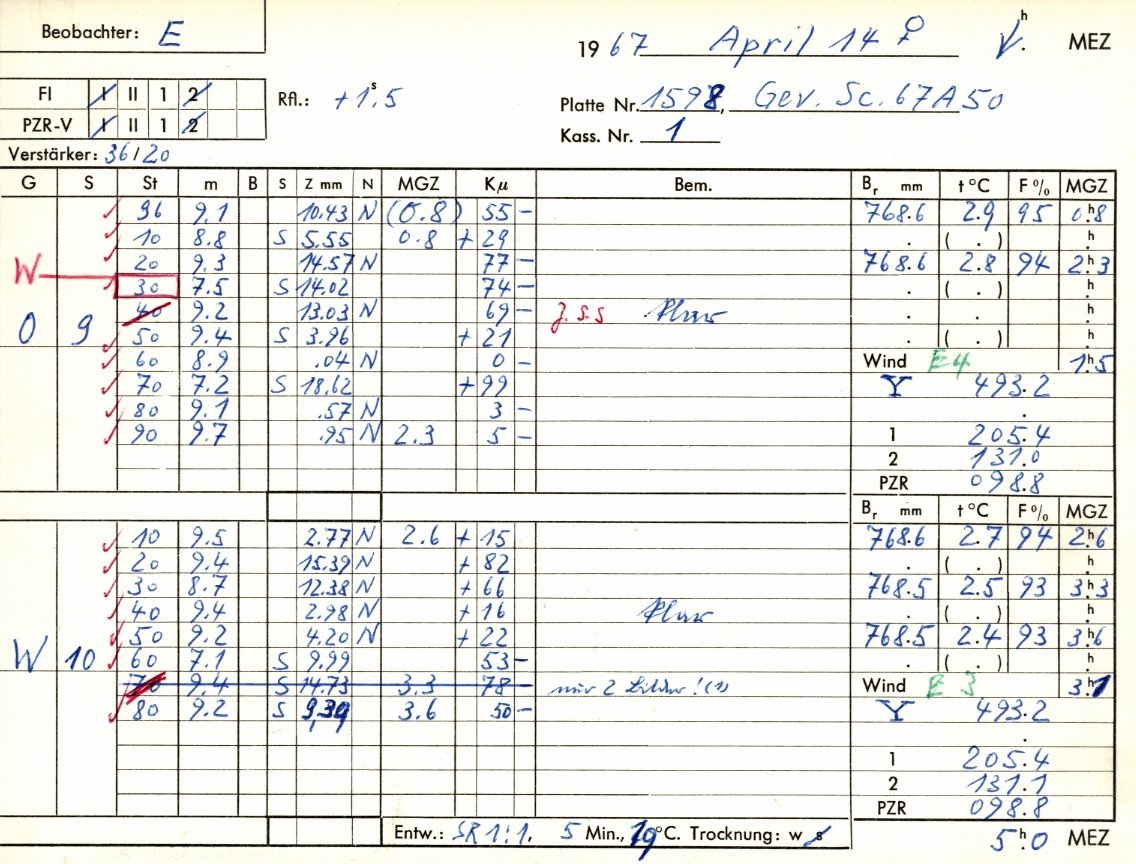 Beobachter: E
19 67 April 14 ♀ h MEZ
FI I II 1 2
PZR-V I II 1 2
Rfl.: +1ˢ.5
Platte Nr. 1598, Gev. Sc. 67A50
Kass. Nr. 1
Verstärker: 36/20
G S St m B S Z mm N MGZ Kμ Bem. Br mm t °C F % MGZ
96 9.1 10.43 N (0.8) 55 – 768.6 2.9 95 0ʰ.8
10 8.8 S 5.55 0.8 + 29 . ( . ) ʰ.
20 9.3 14.57 N 77 – 768.6 2.8 94 2ʰ.3
W 30 7.5 S 14.02 74 – . ( . ) ʰ.
40 9.2 13.03 N 69 – J.S.S klar . . ʰ.
O 9 50 9.4 S 3.96 + 21 . ( . ) ʰ.
60 8.9 .04 N 0 – Wind E4 1ʰ.5
70 7.2 S 18.62 +99 Y 493.2
80 9.1 .57 N 3 – .
90 9.7 .95 N 2.3 5 – 1 205.4
2 131.0
PZR 098.8
Br mm t °C F % MGZ
10 9.5 2.77 N 2.6 + 15 768.6 2.7 94 2ʰ.6
20 9.4 15.39 N + 82 . ( . ) ʰ.
30 8.7 12.38 N + 66 768.5 2.5 93 3ʰ.3
40 9.4 2.98 N + 16 klar . ( . ) ʰ.
50 9.2 4.20 N + 22 768.5 2.4 93 3ʰ.6
W 10 60 7.1 S 9.99 53 – . ( . ) ʰ.
70 9.4 S 14.73 3.3 78 – nur 2 Bilder! (1) Wind E 3 3ʰ.1
80 9.2 S 9.39 3.6 50 – Y 493.2
.
1 205.4
2 131.1
PZR 098.8
Entw.: SR 1:1, 5 Min., 19°C. Trocknung: w s 5ʰ.0 MEZ